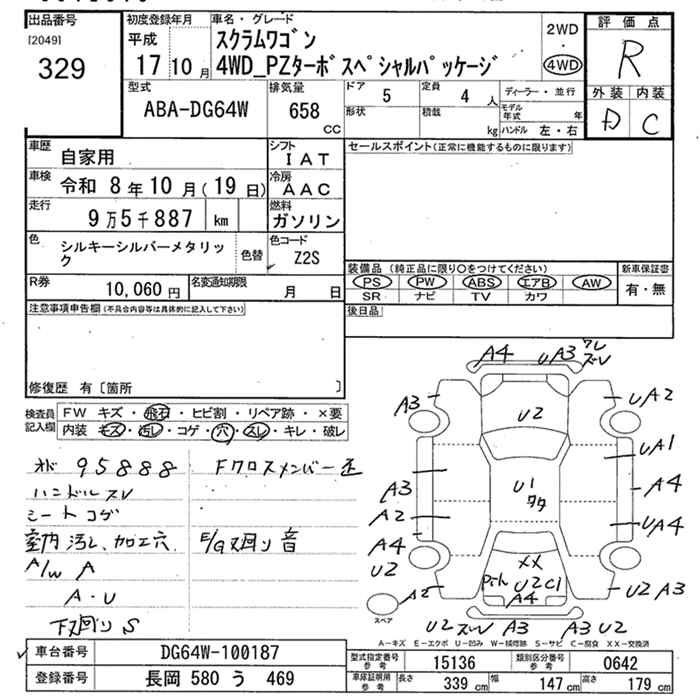 出品番号
[2049]
329
初度登録年月
平成
17年10月
車名・グレード
スクラムワゴン
4WD_PZターボスペシャルパッケージ
2WD
・
4WD
評価点
R
外装 内装
D C
型式
ABA-DG64W
排気量
658
CC
ドア
5
定員
4 人
形状
積載
kg
ディーラー・並行
モデル年式 年
ハンドル 左・右
車歴
自家用
シフト
IAT
車検
令和 8年10月(19日)
冷房
AAC
走行
9万5千887 km
燃料
ガソリン
色
シルキーシルバーメタリック
色替
色コード
Z2S
R券
10,060円
名変通知期限
月 日
セールスポイント(正常に機能するものに限ります)
装備品 (純正品に限り○をつけてください)
PS PW ABS エアB AW
SR ナビ TV カワ
新車保証書
有・無
後日品
注意事項申告欄(不具合内容等は具体的に記入して下さい)
修復歴 有〔箇所 〕
検査員記入欄
FW キズ・飛石・ヒビ割・リペア跡・×要
内装 キズ・汚レ・コゲ・穴・スレ・キレ・破レ
オド 95888
ハンドルスレ
シートコゲ
室内汚レ、加工穴
A/W A
A・U
下廻りS
Fクロスメンバー歪
E/G廻り音
A4
UA3
ワレ
ズレ
A3
U2
UA2
UA1
A3
U1
タタ
A4
A2
UA4
A4
U2
XX
U2C1
A4
A2
U2A3
スペア
U2 ズレ A3
A3 U2
A-キズ E-エクボ U-凹み W-補修跡 S-サビ C-腐食 XX-交換済
車台番号
DG64W-100187
登録番号
長岡 580 う 469
型式指定番号参考
15136
類別区分番号参考
0642
車庫証明用参考
長さ 339cm
幅 147cm
高さ 179cm